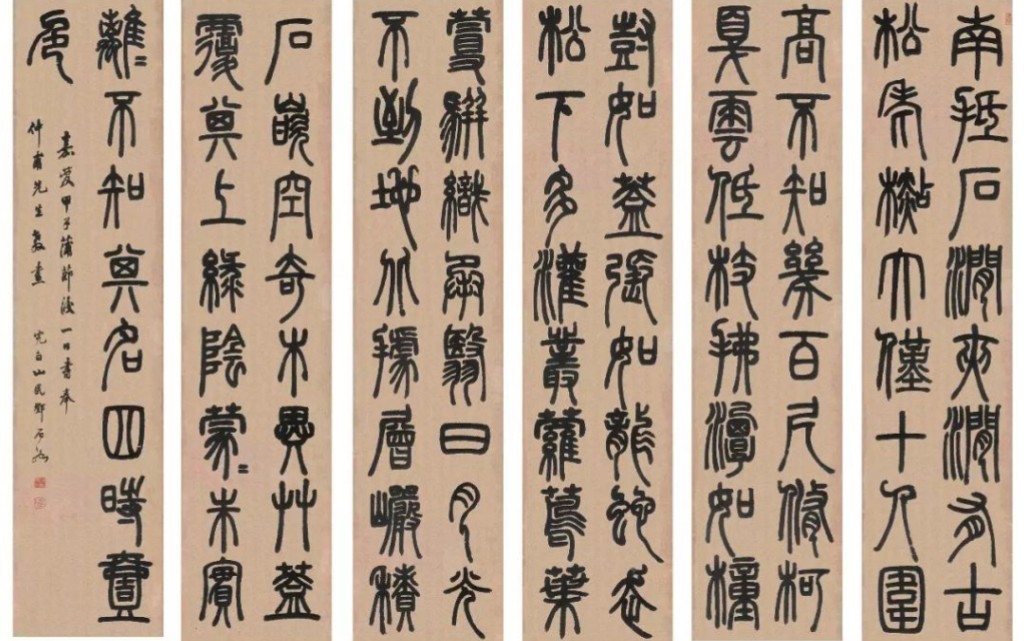 南抵石澗夾澗有古
松老檆大僅十人圍
高不知幾百尺脩柯
戛雲低枝拂潭如橦
尌如蓋張如龍蛇走
松下多灌叢蘿蔦葉
蔓駢織承翳日月光
不到地據層巖積
石嵌空奇木異艸蓋
覆其上綠陰蒙〻朱實
離〻不知其名四時壹
色
嘉慶甲子蒲節後一日書奉
仲甫先生教 完白山民鄧石如